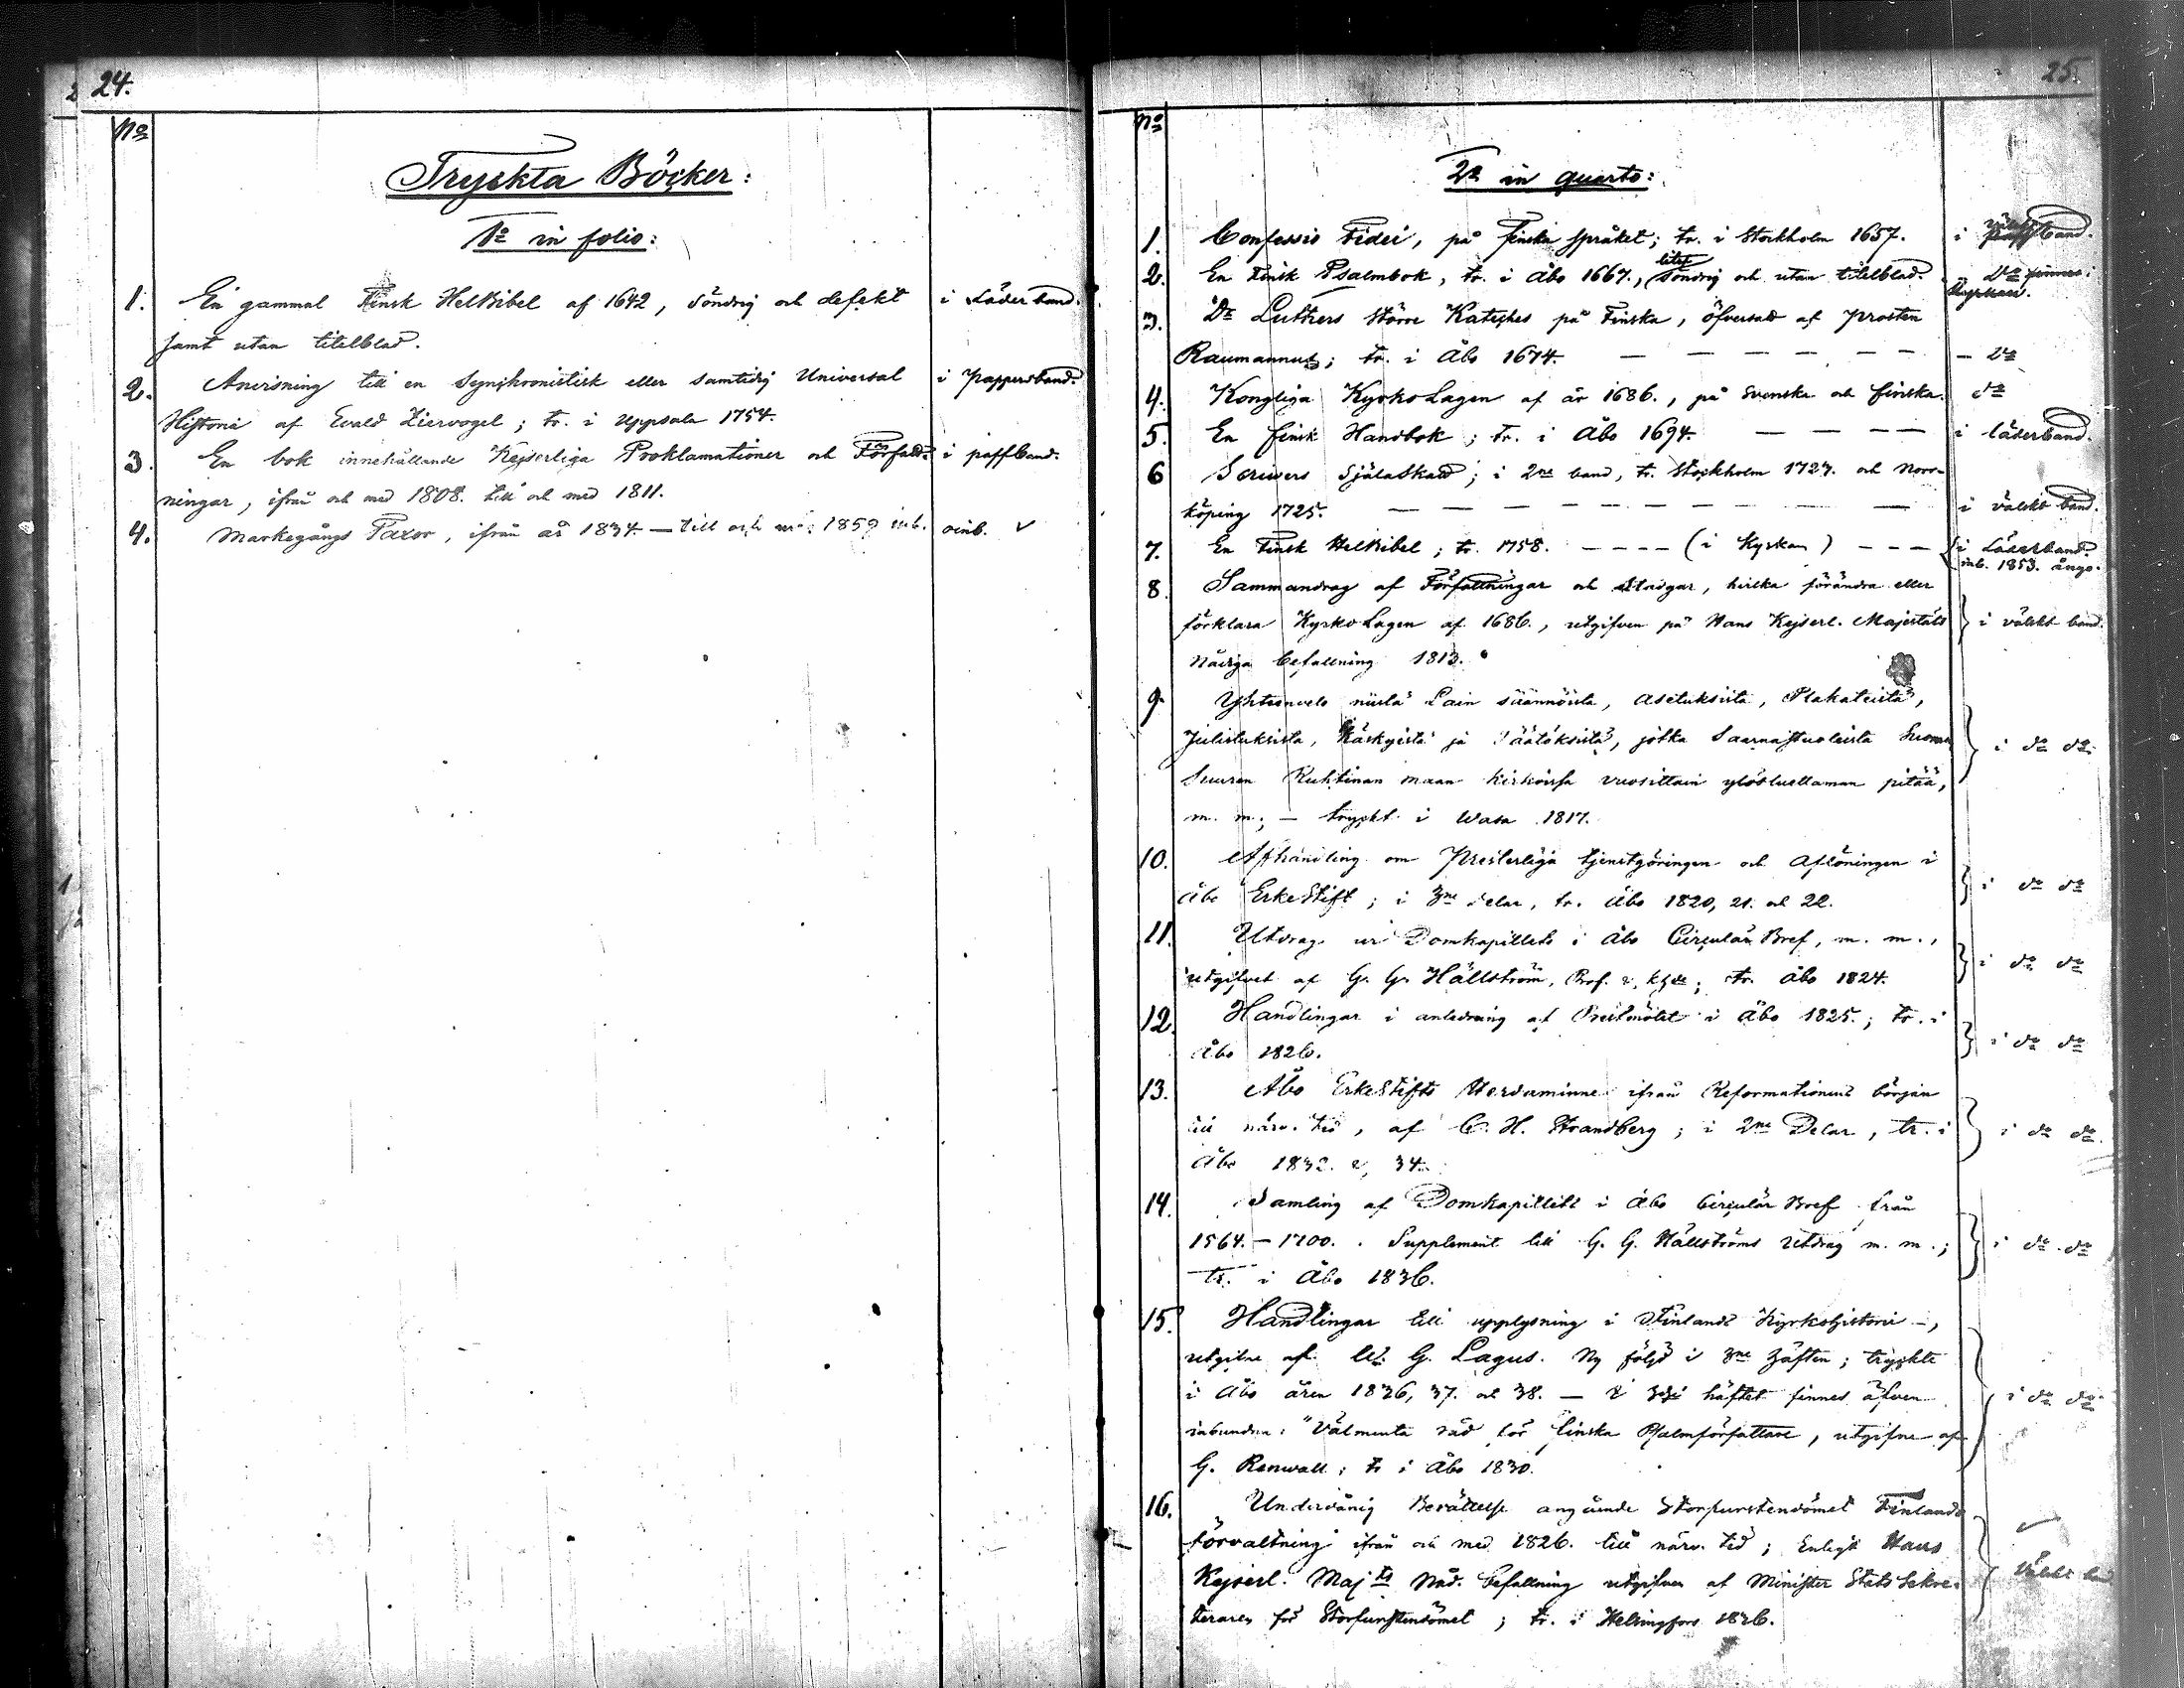 24.
No
Tryckta Böcker:
1o in folio:
1. En gammal Finsk HelBibel af 1642, söndrig och defekt i Läderband.
samt utan titelblad.
2. Anvisning till en Synchronistisk eller samtidig Universal i pappersband.
Historia af Evald Ziervogel; tr. i Uppsala 1754.
3. En bok innehållande Kejserliga Proklamationer och Författ- i paffband.
ningar, ifrån och med 1808. till och med 1811.
4. Markegångs Taxor, ifrån år 1834. — till och med 1859 inb. oinb. ✓
25.
No
2o in quarto:
1. Confessio Fidei, på finska språket; tr. i Stockholm 1657. i band.
2. En Finsk Psalmbok, tr. i Åbo 1667., litet söndrig och utan titelblad. do
3. Dr Luthers större Kateches på Finska, öfversatt af prosten
Raumannus; tr. i Åbo 1674. — — — — — — — do
4. Kongliga KyrkoLagen af år 1686., på Svenska och finska. do
5. En finsk Handbok; tr. i Åbo 1694. — — — — i läderband.
6 Scrivers SjälaSkatt; i 2ne band, tr. Stockholm 1727. och Norr-
köping 1725. — — — — — — — — — i välskt band.
7. En Finsk HelBibel; tr. 1758. — — — — (i Kyrkan) — — — i Läderband.
inb. 1853. ånyo.
8. Sammandrag af Författningar och Stadgar, hvilka förändra eller
förklara KyrkoLagen af 1686., utgifven på Hans Kejserl. Majestäts i välskt band.
Nådiga befallning 1813.
9. Yhteenveto niistä Lain säännöistä, asetuksista, Plakateista,
Julistuksista, Käskyistä ja Päätöksistä, jotka Saarnastuoleista Suomen i do do
Suuren Ruhtinan maan kirkoissa vuosittain ylösluettaman pitää,
m. m; — tryckt i Wasa 1817.
10. Afhandling om Presterliga tjenstgöringen och Aflöningen i
Åbo ErkeStift; i 3ne delar, tr. Åbo 1820, 21. och 22. i do do
11. Utdrag ur Domkapitlets i Åbo Circulär Bref, m. m.,
utgifvet af G. G. Hällström, Prof. & khde; tr. Åbo 1824. i do do
12. Handlingar i anledning af Prestmötet i Åbo 1825.; tr. i
Åbo 1826. i do do
13. Åbo ErkeStifts Herdaminne ifrån Reformationens början
till närv. tid, af C. H. Strandberg; i 2ne Delar, tr. i i do do
Åbo 1832. & 34.
14. Samling af Domkapitlets i Åbo Circulär Bref från
1564. — 1700. Supplement till G. G. Hällströms Utdrag m. m.; i do do
tr. i Åbo 1836.
15. Handlingar till upplysning i Finlands Kyrkohistoria —,
utgifne af W. G. Lagus. Ny följd i 3ne häften; tryckte
i Åbo åren 1836, 37. och 38. — I 3dje häftet finnes äfven i do do
inbundna: "Välmenta råd för finska Psalmförfattare, utgifne af
G. Renwall; tr i Åbo 1830.
16. Underdånig Berättelse angående Storfurstendömet Finlands
förvaltning ifrån och med 1826. till närv. tid; Enligt Hans ✓
Kejserl. Maj:ts Nåd. befallning utgifven af Minister Stats Sekre- Välskt band
teraren för Storfurstendömet; tr. i Helsingfors 1836.